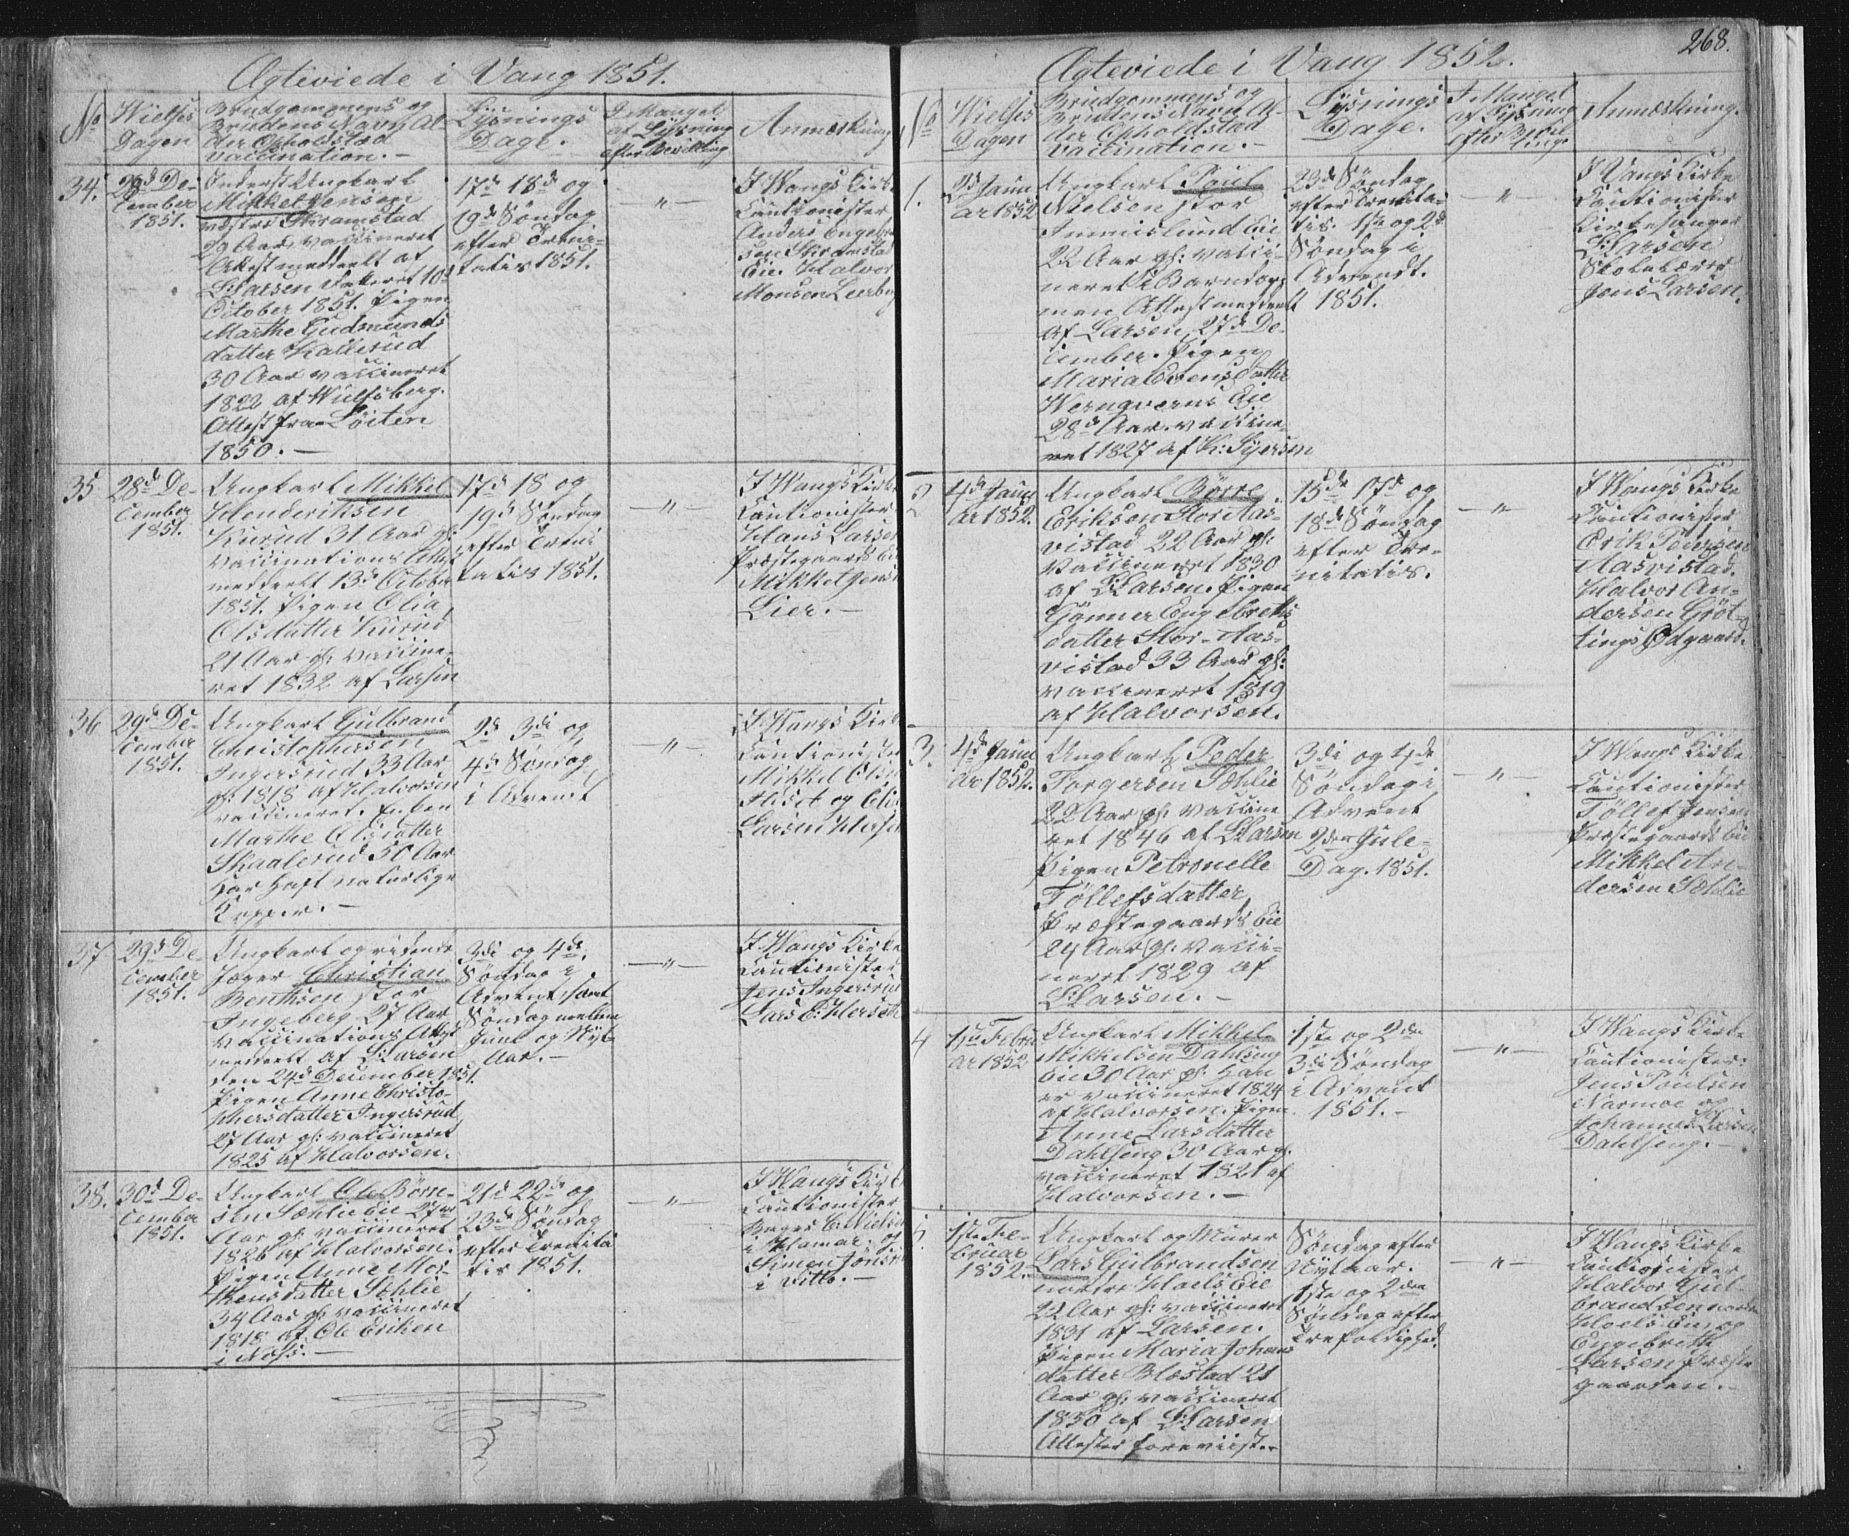 268.
Ægteviede i Vang 1851.
No
Wielses
Dagen
Brudgommens og
Brudens Navn Al
der Opholdstad
vaccination. –
Lysnings
Dage.
I Mangel
af Lysning
efter Bevilling
Anmærkning
34.
28d De-
cember
1851.
Ungkarl
Mikkel Jensen
Skramstad
29 Aar vaccineret
Attest meddeelt af
L: Larsen dateret 10d
October 1851. Pigen
Marthe Gudmunds
datter Kallerud
30 Aar vaccineret
1822 af Wulfsberg.
Attest fra Löiten
1850. –
17d 18d og
19d Söndag
efter Treni-
tatis 1851.
– " –
I Wangs Kirke
Cautionister
Anders Engebret
sen Skramstad
Eie. Halvor
Monsen Leerberg
35
28d De-
cember
1851.
Ungkarl Mikkel
Henderiksen
Kurud 31 Aar gl:
vaccinations Attest
meddeelt 13d October
1851. Pigen Olia
Olsdatter Kurud
21 Aar gl: vaccine-
ret 1832 af Larsen
17d 18 og
19d Söndag
efter Treni
tatis 1851.
– " –
I Wangs Kirke
Cautionister
Hans Larsen
Præstegaards Eie
Mikkel Jensen
Lier. –
36
29d De-
cember
1851.
Ungkarl Gulbrand
Christophersen
Ingersrud 33 Aar
gl: 1818 af Halvorsen
vaccineret. Enken
Marthe Olsdatter
Skaalerud 50 Aar
har haft naturlige
Kopper. –
2d 3di og
4d Söndag
i Advent
– " –
I Wangs Kirke
Cautionister
Mikkel Olsen
og
Larsen
37
29d De-
cember
1851.
Ungkarl og ridende
Jæger Christian
Benthsen stor
Ingeberg 27 Aar
vaccinations Attest
meddeelt af L: Larsen
den 24d December 1851.
Pigen Anne Christo-
phersdatter Ingersrud
27 Aar gl: vaccineret
1825 af Halvorsen.
3di og 4de
Söndag i
Advent samt
Söndag mellem
Juul og Nyt-
Aar. –
– " –
I Wangs Kirke
Cautionister
Jens Ingersrud
Lars
38.
30d De-
cember
1851.
Ungkarl Ole Börre-
sen Sæhlie Eie 27
Aar gl: vaccineret
1826 af Halvorsen.
Pigen Anne Mor-
thensdatter Söhlie
34 Aar gl: vaccineret
1818 af Ole Eriksen
i Næss. –
21d 22de og
23de Söndag
efter Trenita
tis 1851.
– " –
I Wangs Kirke
Cautionister
Nielsen
i Hamar og
Simen Jönsen
i ditto. –
Ægteviede i Vang 1852.
No
Wielses
Dagen
Brudgommens og
Brudens Navn Al-
der Opholdstad
vaccination. –
Lysnings
Dage.
I Mangel
af Lysning
efter Bevil-
linge
Anmærkning.
1.
2d Janu
ar 1852
Ungkarl Poul
Nielsen stor
Immislund Eie
22 Aar gl: vacci-
neret i Barndom
men Attest meddeelt
af Larsen 27d De-
cember. Pigen
Maria Evensdatter
Eie
28d Aar. vaccine-
ret 1827 af
23d Söndag
efter Trenita-
tis. 1ste og 2d
Söndag i
Advendt.
1851.
– " –
I Vangs Kirke
Cautionister
Kirkesanger
L: Larsen
Skolelærer
Jens Larsen.
2
4de Janu
ar 1852.
Ungkarl Börre
Eriksen Stor Aas-
vistad 22 Aar gl:
Vaccineret 1830
af L: Larsen. Pigen
Gönner Engebreths
datter Stor-Aas-
vistad 33 Aar gl:
vaccineret 1819
af Halvorsen.
15de 17de og
18de Söndag
efter Tre-
nitatis.
– " –
I Wangs Kirke
Cautionister
Erik Pedersen
Aasvistad.
Halvor An-
dersen Gröt-
tings Ödgaard.
3.
4de Janu
ar 1852.
Ungkarl Peder
Torgersen Söhlie
22 Aar gl: vaccine
ret 1846 af L: Larsen
Pigen Petronelle
Töllefsdatter
Præstegaards Eie
24 Aar gl: vacci-
neret 1829 af
L: Larsen. –
3di og 4de
Söndag i
Advent
2den Jule-
Dag. 1851.
– " –
I Wangs Kirke
Cautionister
Töllef Jensen
Præstegaards Eie
Mikkel An-
dersen Söhlie
4
1ste Febru
ar 1852
Ungkarl Mikkel
Mikkelsen Dahlseng
Eie 30 Aar gl: han
er vaccineret 1824
af Halvorsen. Pigen
Anne Larsdatter
Dahlseng 30 Aar gl.
vaccineret 1821 af
Halvorsen. –
1ste og 2den
3di Söndag
i Advent
1851. –
– " –
I Wangs Kirke
Cautionister:
Jens Poulsen
Narmoe og
Johannes Larsen
Dahlseng. –
5
1ste Fe-
bruar
1852.
Ungkarl og Murer
Lars Gulbrandsen
nordre Hoels Eie
22 Aar gl: vaccineret
1831 af Larsen.
Pigen Maria Johans
datter Blæstad 21
Aar gl: vaccineret
1850 af L: Larsen
Attester foreviist. –
Söndag efter
Nytaar.
1ste og 2den
Söndag efter
Trefoldighed.
– " –
I Wangs Kirke
Cautionister
Halvor Gul-
brandsen nordre
Hoels Eie og
Engebreth
Larsen Præste
gaarden. –